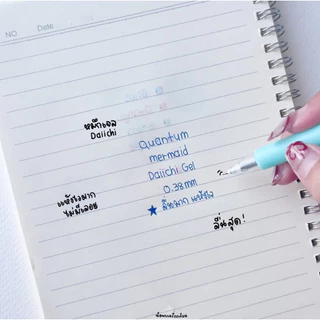 NO.
Date
หมึกเจล
Daiichi
Quantum
mermaid
Daiichi Gel
0.38mm
ลื่นมาก แห้งไว
แห้งไวมาก
ไม่มีเลอะ
ลื่นสุด!